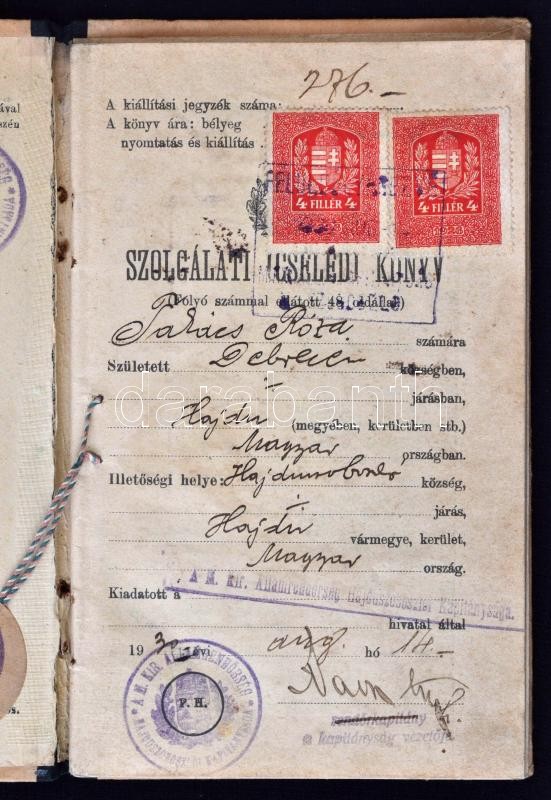 276.-
A kiállítási jegyzék száma:
A könyv ára: bélyeg
nyomtatás és kiállítás
4 FILLÉR 4
4 FILLÉR 4
SZOLGÁLATI (CSELÉD) KÖNYV
(Folyó számmal ellátott 48 oldallal)
Takács Róza számára
Született Debrecen községben,
járásban,
Hajdu (megyében, kerületben stb.)
Magyar országban.
Illetőségi helye: község,
járás,
Hajdu vármegye, kerület,
Magyar ország.
A M. kir. Államrendőrség Hajdúszoboszlói Kapitánysága.
Kiadatott a
hivatal által
1930 évi aug. hó 14.-
P. H.
rendőrkapitány
a kapitányság vezetője
ával
szén
darabanth